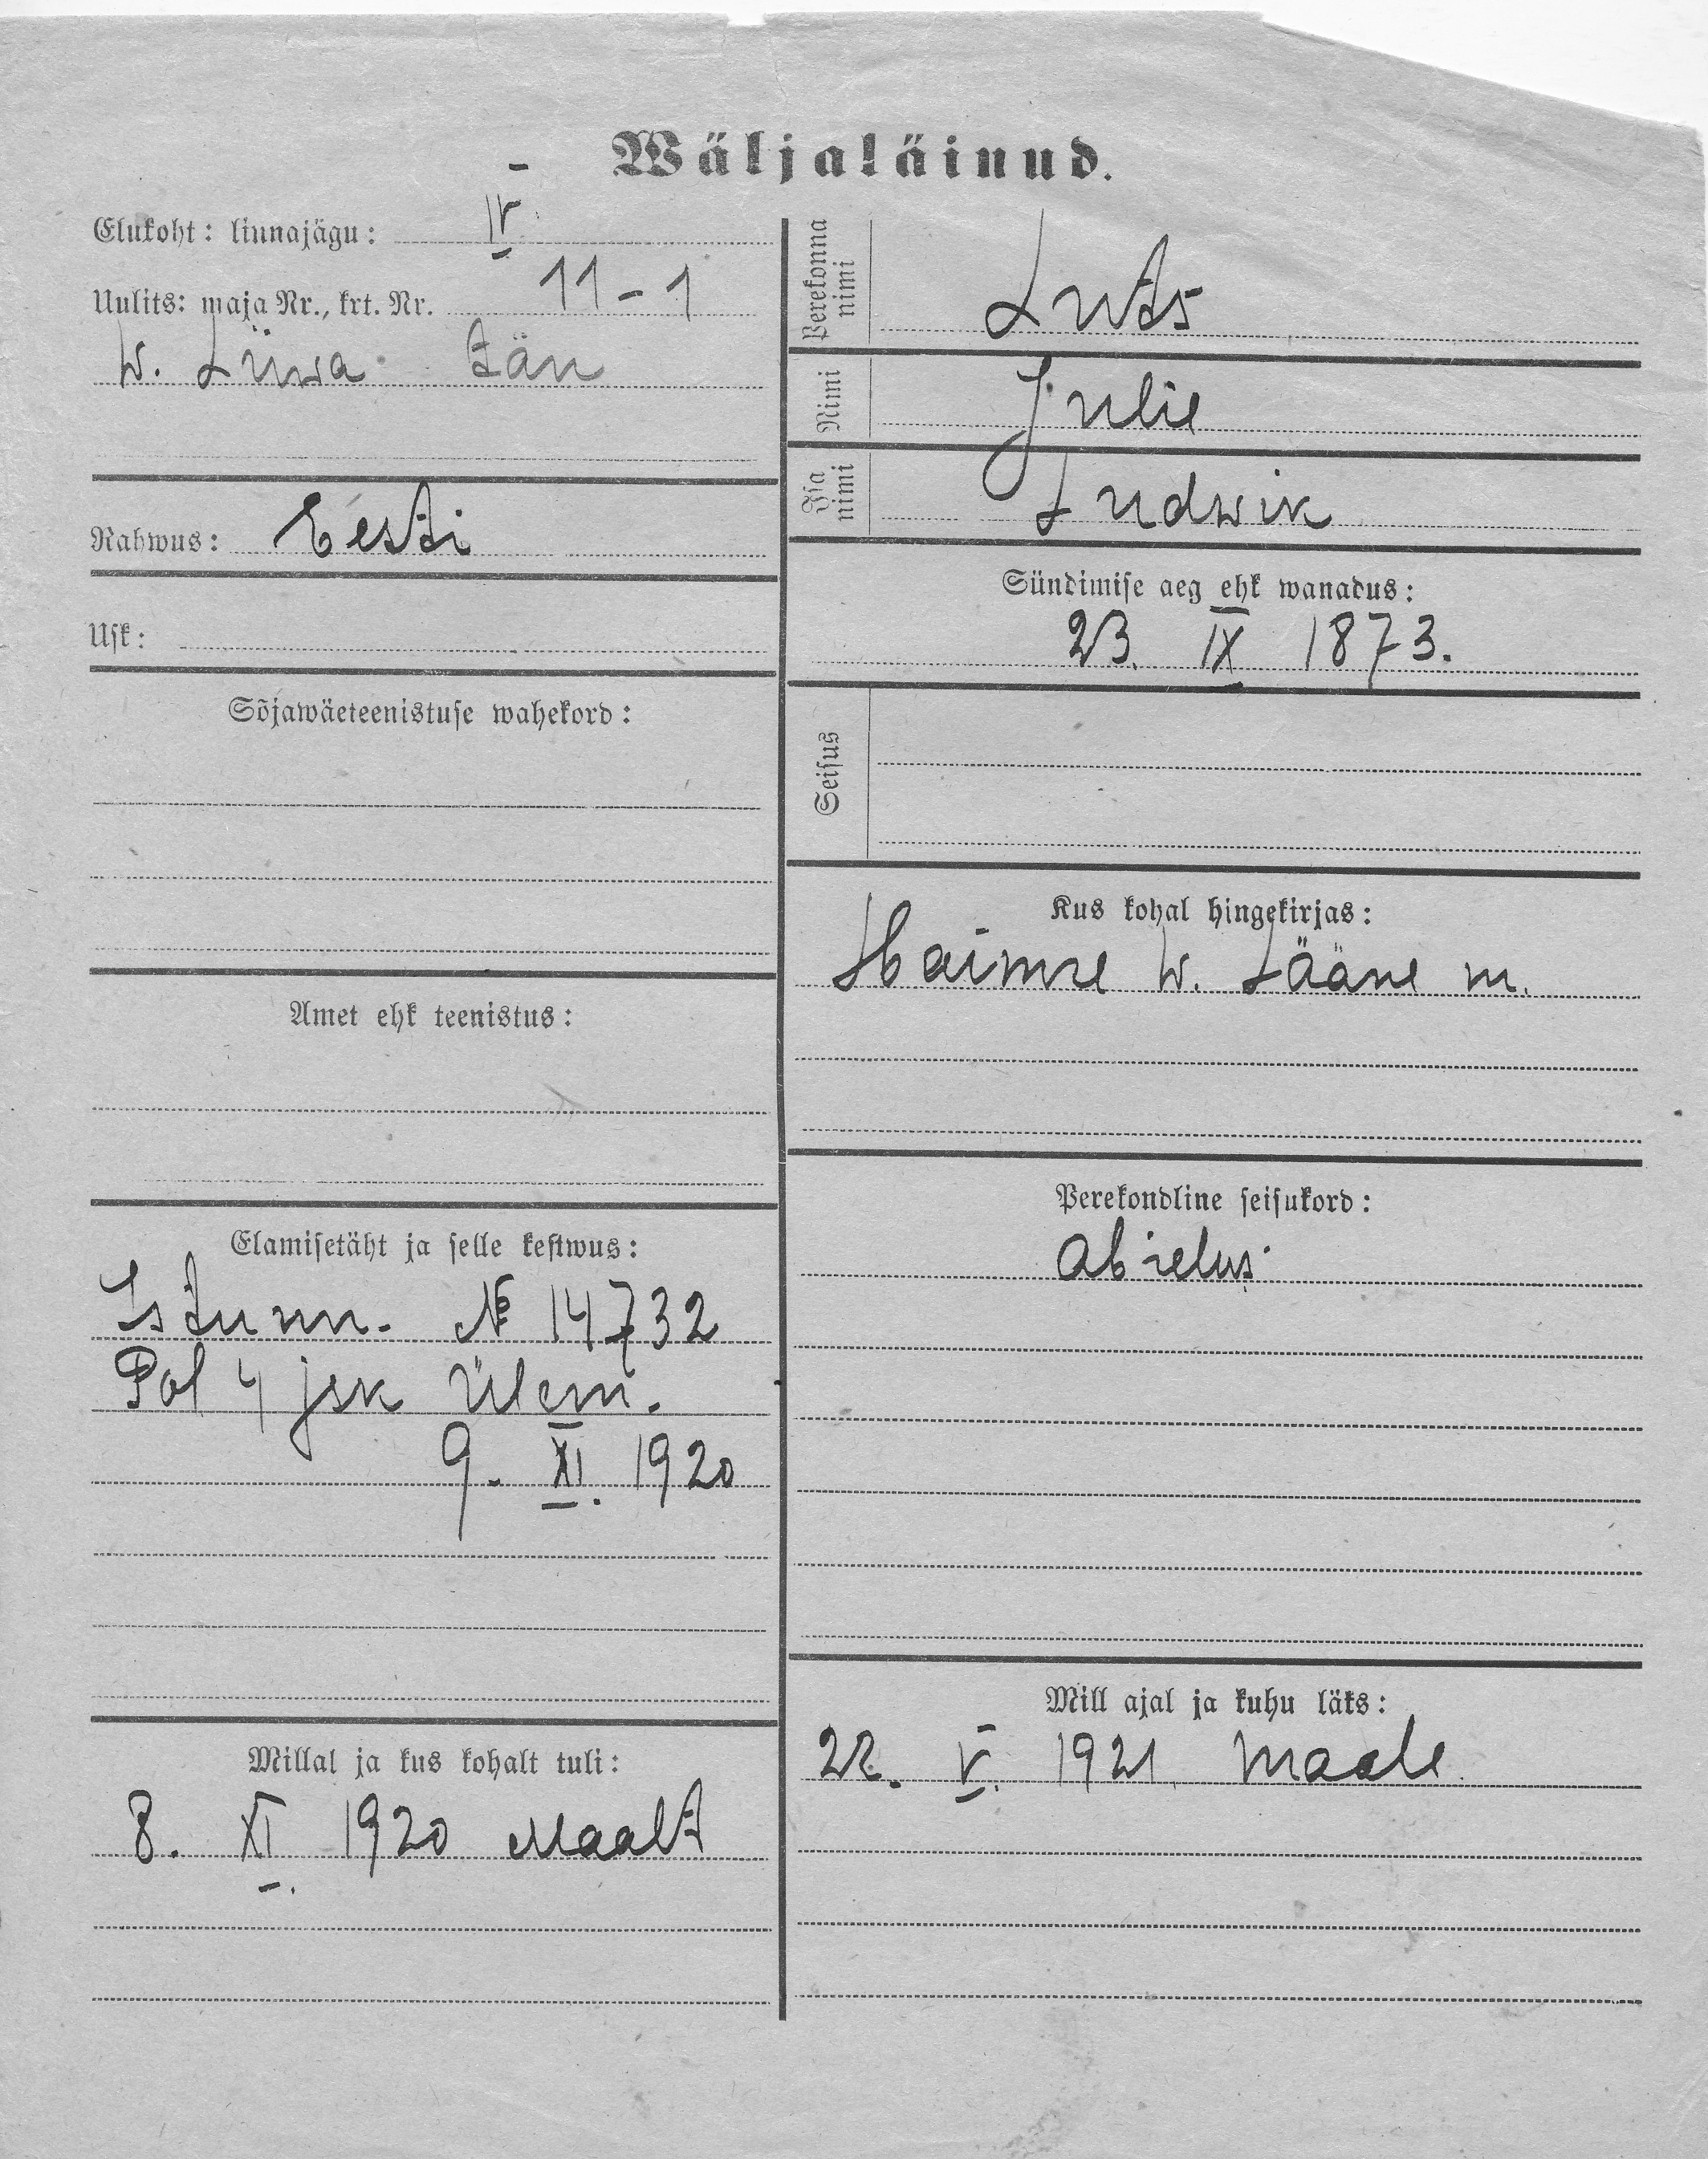 Wäljaläinud.
Elukoht: linnajägu: IV
Uulits: maja Nr., krt. Nr. 11-1
W. Liiwa tän
Rahwus: Eesti
Usk:
Sõjawäeteenistuse wahekord:
Amet ehk teenistus:
Elamisetäht ja selle kestwus:
Istunn. № 14732
Pol 4 jsk Ülem.
9. XI. 1920
Millal ja kus kohalt tuli:
8. XI. 1920 Maalt
Perekonna nimi Luts
Nimi Julie
Isa nimi Ludwik
Sündimise aeg ehk wanadus:
23. IX 1873.
Seisus
Kus kohal hingekirjas:
Haimre w. Lääne m.
Perekondline seisukord:
abielus
Mill ajal ja kuhu läks:
22. V. 1921. Maale